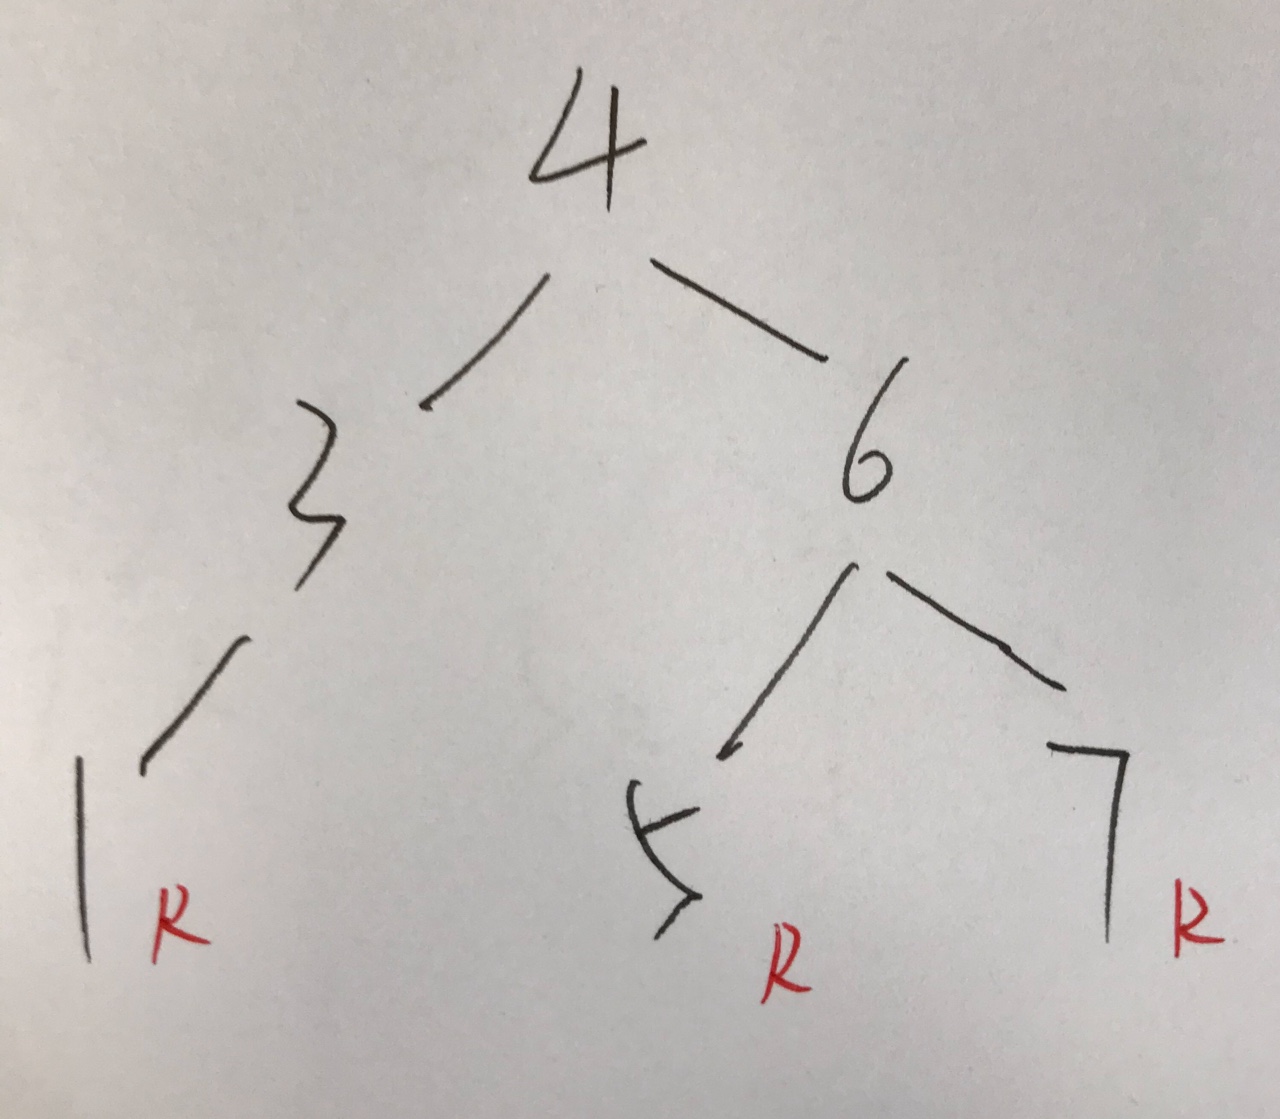 4
3 6
1 R 5 R 7 R